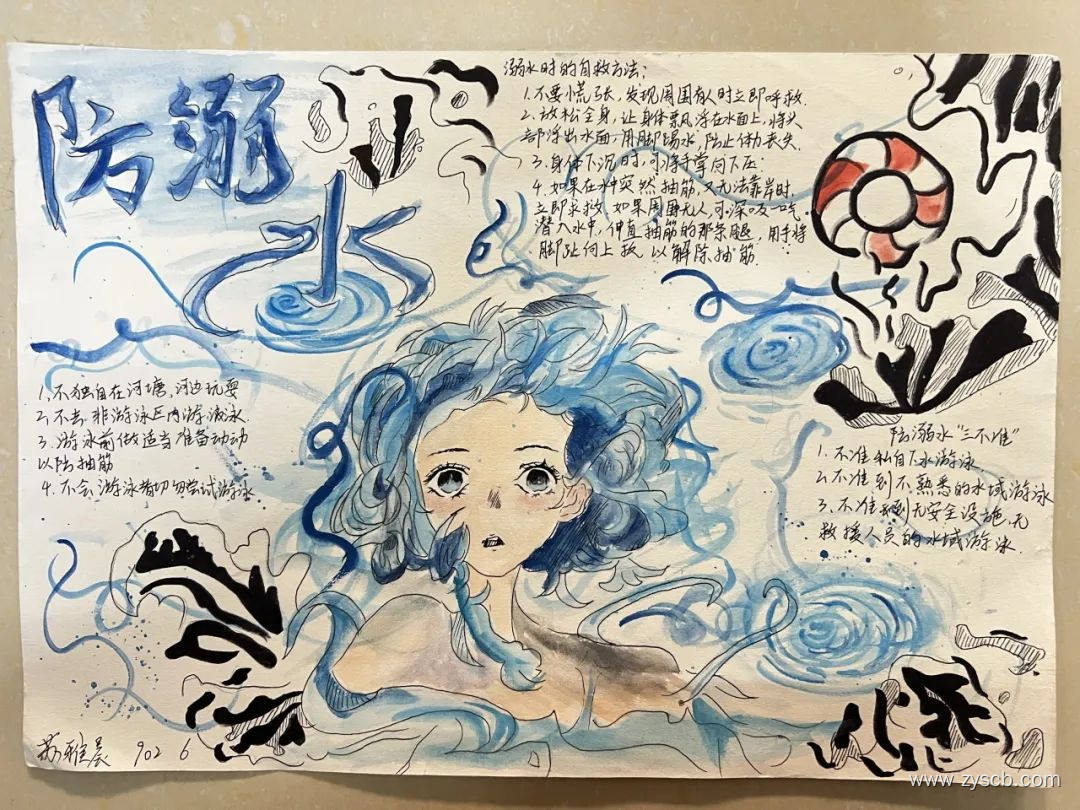 防溺
水
溺水时的自救方法:
1.不要慌张,发现周围有人时立即呼救.
2.放松全身,让身体飘浮在水面上,将头
部浮出水面,用脚踢水,防止体力丧失.
3.身体下沉时,可将手掌向下压
4.如果在水中突然抽筋,又无法靠岸时
立即求救.如果周围无人,可深吸一口气
潜入水中,伸直抽筋的那条腿,用手将
脚趾向上扳,以解除抽筋.
1.不独自在河塘、河边玩耍
2.不去非游泳区内游泳.
3.游泳前做适当准备动动
以防抽筋
4.不会游泳者切勿尝试游泳.
防溺水“三不准”
1.不准私自下水游泳
2.不准到不熟悉的水域游泳
3.不准到无安全设施、无
救援人员的水域游泳.
雅晨 902 6
www.zyscb.com